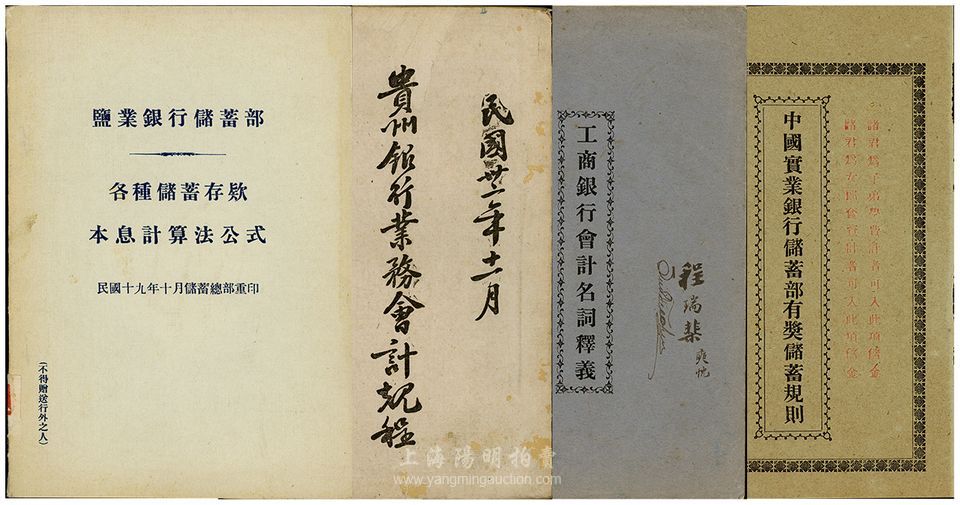 鹽業銀行儲蓄部
各種儲蓄存欵
本息計算法公式
民國十九年十月儲蓄總部重印
(不得贈送行外之人)
民國卅二年十二月
貴州銀行業務會計規程
工商銀行會計名詞釋義
程瑞
中國實業銀行儲蓄部有獎儲蓄規則
諸君爲子弟學費計者可入此項儲金
諸君爲女嫁奩資計者可入此項儲金
上海陽明拍賣
www.yangmingauction.com